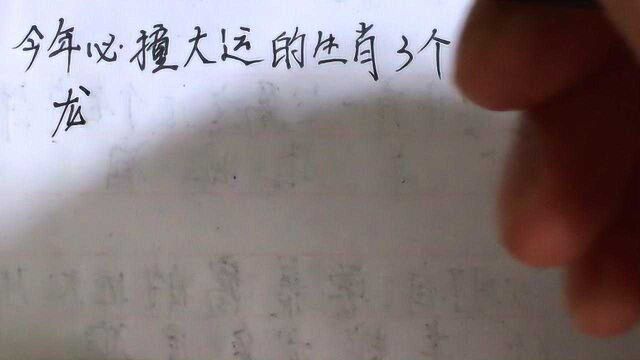 今年必撞大运的生肖3个
龙